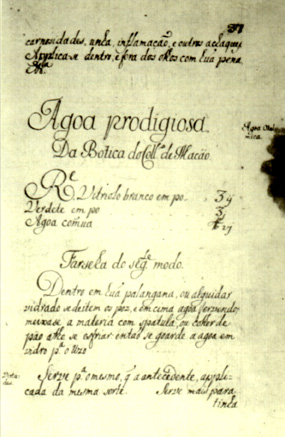 carnosidades, unha, inflamação, e outros achaques
Applica-se dentro, e fora dos olhos com hũa pena
Agoa prodigiosa
Da Botica do Coll.º de Macáo
Re Vitriolo branco em po
Verdete em po
Agoa comũa
Farseha do seg.te modo
Dentro em hũa palangana, ou alguidar
vidrado se deitem os poz, e em cima agoa fervendo;
mexase, a materia com spatula, ou colher de
páo athe se esfriar entáo se goarde a agoa em
vidro p.ª o uzo
Serve p.ª o mesmo, q̃ a antecedente, appli-
cada da mesma sorte. Serve mais para
tinha